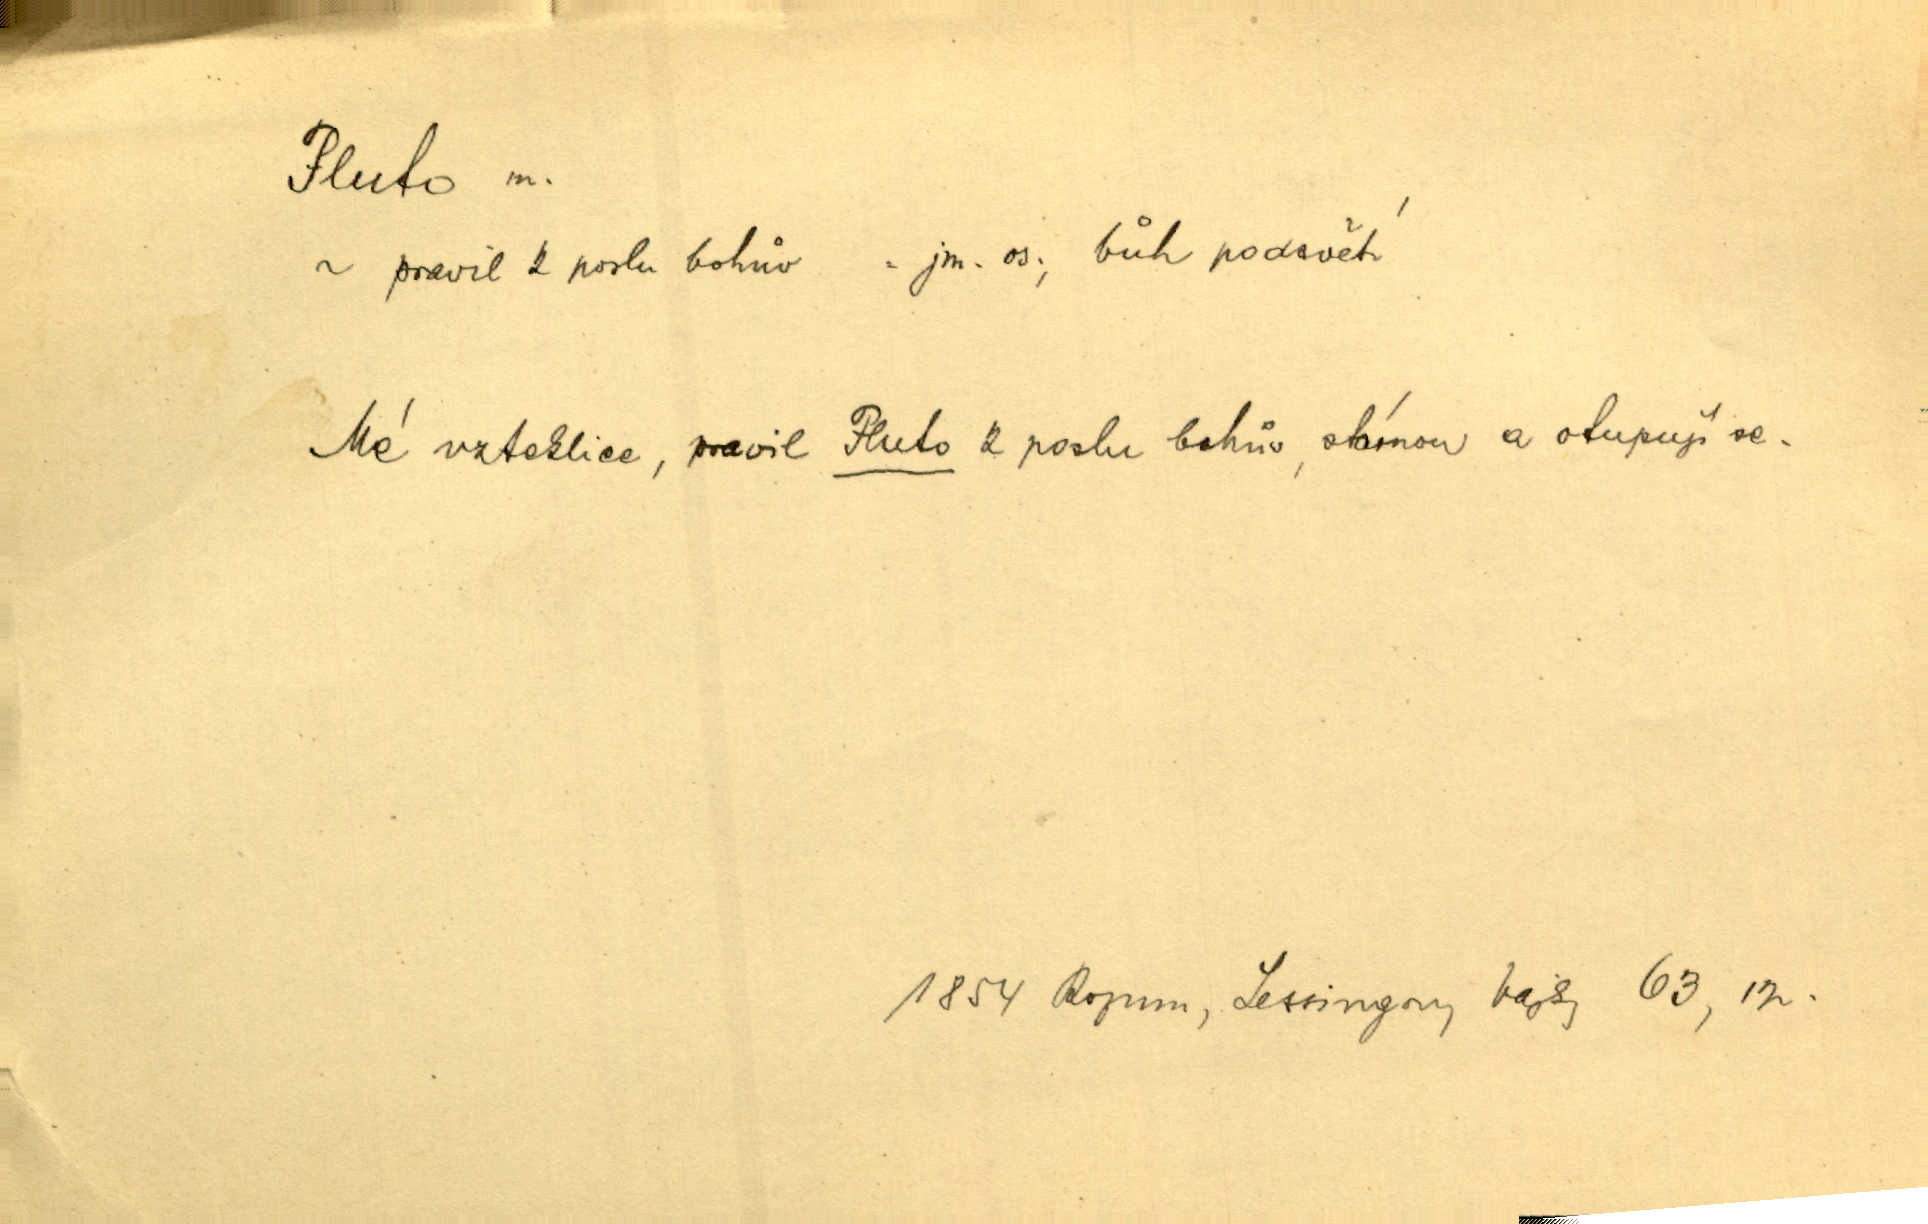 Pluto m.
~ pravil k poslu bohův - jm. os., bůh podsvětí
Mé vzteklice, pravil Pluto k poslu bohův, stárnou a otupují se.
1854 Rozum, Lessingovy bajky 63, 12.